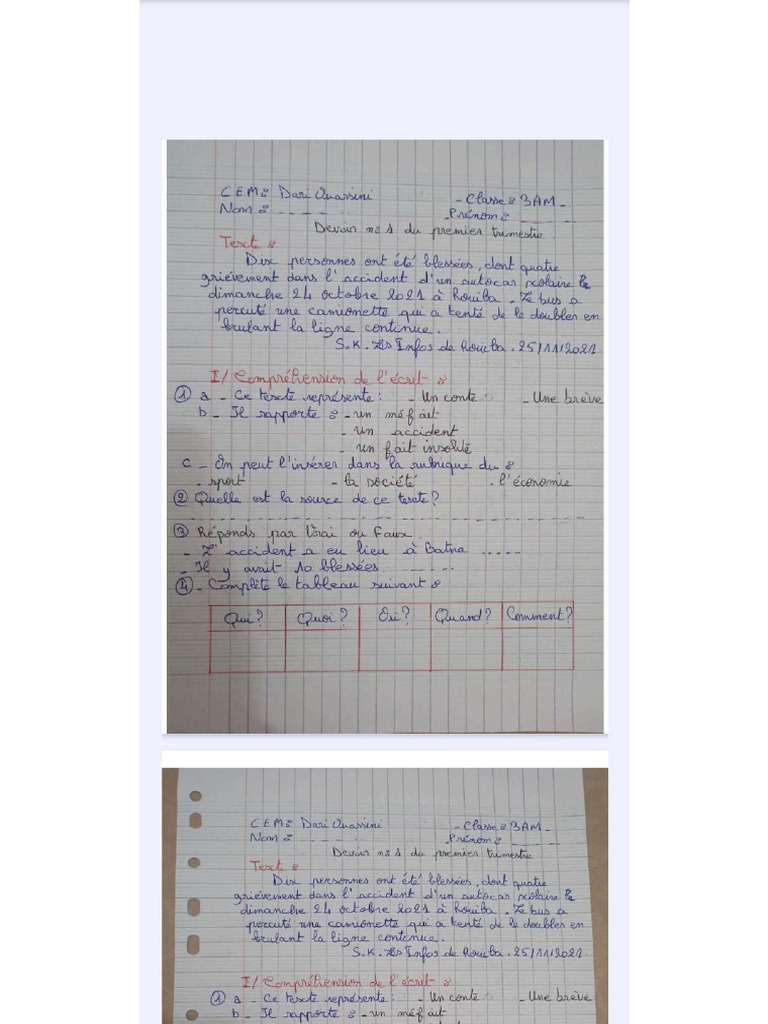 CEM: Dari Ouassini - Classe: 3AM -
Nom : - - - - - - - Prénom : - - - - - -
Devoir n:1 du premier trimestre
Texte :
Dix personnes ont été blessées, dont quatre
grièvement dans l'accident d'un autocar scolaire le
dimanche 24 octobre 2021 à Rouiba. Le bus a
percuté une camionette qui a tenté de le doubler en
brulant la ligne continue.
S.K. Les Infos de Rouiba. 25/11/2021
I/ Compréhension de l'écrit :
① a - Ce texte représente : - Un conte - Une brève
b - Il rapporte : - un méfait
- un accident
- un fait insolité
c - On peut l'insérer dans la rubrique du :
- sport - la société - l'économie
② Quelle est la source de ce texte?
③ Réponds par Vrai ou Faux.
- L'accident a eu lieu à Batna .....
- Il y avait 10 blessées ......
④ - Complète le tableau suivant :
Qui? Quoi? Où? Quand? Comment?
CEM: Dari Ouassini - Classe: 3AM -
Nom : - - - - - - - Prénom : - - - - - -
Devoir n:1 du premier trimestre
Texte :
Dix personnes ont été blessées, dont quatre
grièvement dans l'accident d'un autocar scolaire le
dimanche 24 octobre 2021 à Rouiba. Le bus a
percuté une camionette qui a tenté de le doubler en
brulant la ligne continue.
S.K. Les Infos de Rouiba. 25/11/2021
I/ Compréhension de l'écrit :
① a - Ce texte représente : - Un conte - Une brève
b - Il rapporte : - un méfait